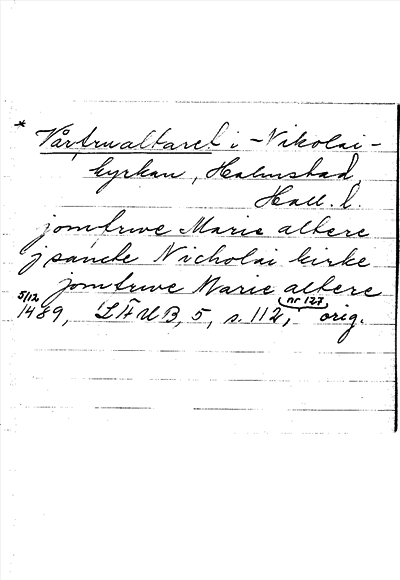 * Vårfrualtaret i Nikolai-
kyrkan, Halmstad,
Hall. l.
jomfrwe Marie altere
j sancte Nicholai kirke
jomfrwe Marie altere
5/12 1489, LÄUB, 5, s. 112, nr 127, orig.